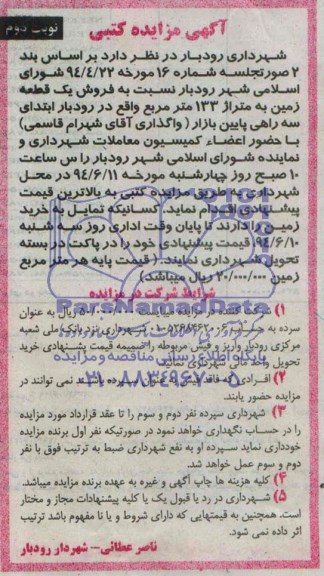 نوبت دوم
آگهی مزایده کتبی
شهرداری رودبار در نظر دارد بر اساس بند
۲ صورتجلسه شماره ۱۶ مورخه ۹۴/۴/۲۲ شورای
اسلامی شهر رودبار نسبت به فروش یک قطعه
زمین به متراژ ۱۳۳ متر مربع واقع در رودبار ابتدای
سه راهی پایین بازار ( واگذاری آقای شهرام قاسمی)
با حضور اعضاء کمیسیون معاملات شهرداری و
نماینده شورای اسلامی شهر رودبار راس ساعت
۱۰ صبح روز چهارشنبه مورخه ۹۴/۶/۱۱ در محل
شهرداری به طریق مزایده کتبی به بالاترین قیمت
پیشنهادی اقدام نماید. کسانیکه تمایل به خرید
زمین را دارند تا پایان وقت اداری روز سه شنبه
۹۴/۶/۱۰ قیمت پیشنهادی خود را در پاکت در بسته
تحویل شهرداری نمایند. ( قیمت پایه هر متر مربع
زمین ۲۰/۰۰۰/۰۰۰ ریال میباشد)
شرایط شرکت در مزایده
۱) شرکت کننده در مزایده ریال به عنوان
سپرده به حساب شهرداری نزد بانک ملی شعبه
مرکزی رودبار واریز و فیش مربوطه را ضمیمه قیمت پیشنهادی خرید
تحویل واحد مالی شهرداری نمایند.
۲) افرادی که فاقد فیش سپرده باشند نمی توانند در
مزایده حضور یابند.
۳) شهرداری سپرده نفر دوم و سوم را تا عقد قرارداد مورد مزایده
را در حساب نگهداری خواهد نمود در صورتیکه نفر اول برنده مزایده
خودداری نماید سپرده او به نفع شهرداری ضبط به ترتیب فوق با نفر
دوم و سوم عمل خواهد شد.
۴) کلیه هزینه ها چاپ آگهی و غیره به عهده برنده مزایده میباشد.
۵) شهرداری در رد یا قبول یک یا کلیه پیشنهادات مجاز و مختار
است. همچنین به قیمتهایی که دارای شروط و یا نا مفهوم باشد ترتیب
اثر داده نمی شود.
ناصر عطائی– شهردار رودبار
ParsNamadData
پایگاه اطلاع رسانی مناقصه و مزایده
۰۲۱-۸۸۳۴۹۶۷۰-۵